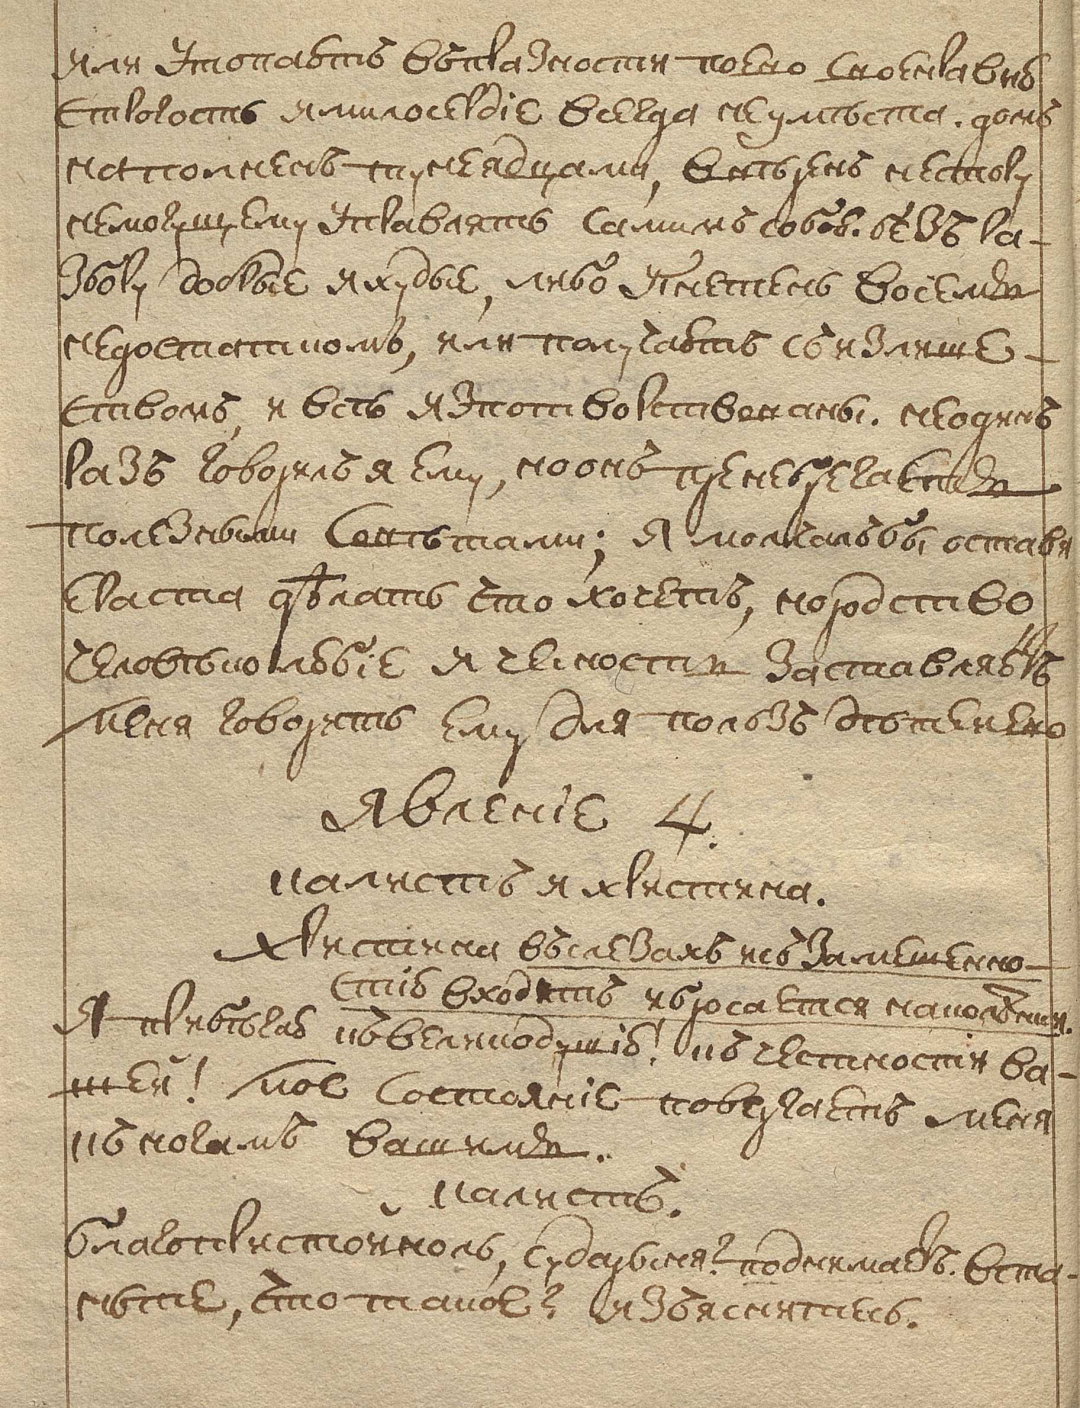 или утопаетъ въ праздности коего споспешествуетъ
строгость и милосердіе всегда неумѣста. домъ
наполненъ тунеядцами, ввѣренъ нестору
немогущему управлять самимъ собою. безъ ра-
збору добрые и худые, либо угнетены всеми
недостатками, или получаютъ съ излише-
ствомъ, и всѣ изпотворствованы. неодинъ
разъ говорилъ я ему, но онъ пренебрегаетъ
полезными совѣтами; я молчалъ бы остави
Ераста дѣлать что хочетъ, но родство
человѣколюбіе и честность заставляютъ
меня говорить ему для пользъ дѣтей его
Явленіе 4.
Калистъ и христина.
христина въ слезахъ и въ замешенно-
стіѣ входитъ и бросается на колѣни.
Я прибѣгаю къ великодушію! къ честности ва-
шей! мое состояніе повергаетъ меня
къ ногамъ вашимъ.
Калистъ.
благопристойноль, сударыня? поднимаетъ. вста-
ньте, что такое? изъяснитесь.